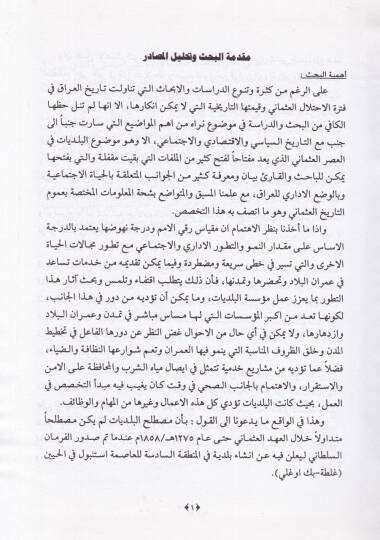 مقدمة البحث وتحليل المصادر
أهمية البحث :
على الرغم من كثرة وتنوع الدراسات والابحاث التي تناولت تاريخ العراق في
فترة الاحتلال العثماني وقيمتها التاريخية التي لا يمكن انكارها، الا انها لم تنل حظها
الكافي من البحث والدراسة في موضوع نراه من اهم المواضيع التي سارت جنباً الى
جنب مع التاريخ السياسي والاقتصادي والاجتماعي، الا وهو موضوع البلديات في
العصر العثماني الذي يعد مفتاحاً لفتح كثير من الملفات التي بقيت مقفلة والتي بفتحها
يمكن للباحث والقارئ بيان ومعرفة كثير من الجوانب المتعلقة بالحياة الاجتماعية
وبالوضع الاداري للعراق، مع علمنا المسبق والمتواضع بشحة المعلومات المختصة بعموم
التاريخ العثماني وهو ما اتصف به هذا التخصص.
واذا ما أخذنا بنظر الاهتمام ان مقياس رقي الامم ودرجة نهوضها يعتمد بالدرجة
الاساس على مقدار النمو والتطور الاداري والاجتماعي مع تطور مجالات الحياة
الاخرى والتي تسير في خطى سريعة ومضطردة وفيما يمكن تقديمه من خدمات تساعد
في عمران البلاد وتحضرها وتمدنها، فأن ذلك يتطلب اقتفاء وتلمس وبحث آثار هذا
التطور بما يعزز عمل مؤسسة البلديات، وما يمكن أن تؤديه من دور في هذا الجانب،
لكونها تعد من اكبر المؤسسات التي لها مساس مباشر في تمدن وعمران البلاد
وازدهارها، ولا يمكن في أي حال من الاحوال غض النظر عن دورها الفاعل في تخطيط
المدن وخلق الظروف المناسبة التي ينمو فيها العمران وتعم شوارعها النظافة والضياء،
فضلاً عما تؤديه من مشاريع خدمية تتمثل في ايصال مياه الشرب والمحافظة على الامن
والاستقرار، والاهتمام بالجانب الصحي في وقت كان يغيب فيه مبدأ التخصص في
العمل، بحيث كانت البلديات تؤدي كل هذه الاعمال وغيرها من المهام والوظائف.
وهذا في الواقع ما يدعونا الى القول : بأن مصطلح البلديات لم يكن مصطلحاً
متداولاً خلال العهد العثماني حتى عام ١٢٧٥هـ/١٨٥٨م عندما تم صدور الفرمان
السلطاني ليعلن فيه عن انشاء بلدية في المنطقة السادسة للعاصمة استنبول في الحيين
(غلطة-بك اوغلي).
﴿١﴾